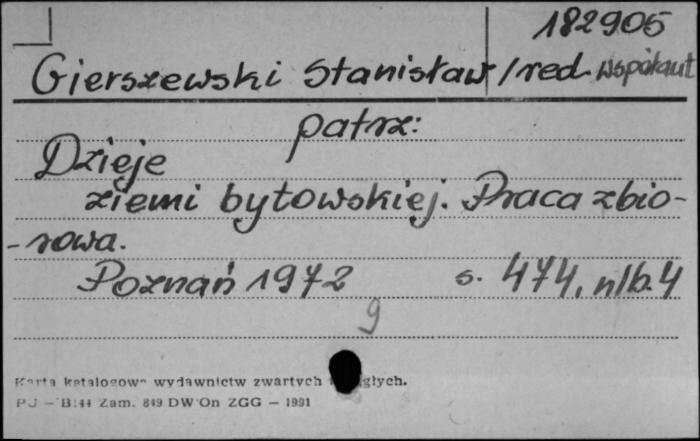 182905
Gierszewski Stanisław /red. współaut
patrz:
Dzieje
ziemi bytowskiej. Praca zbio-
-rowa.
Poznań 1972 s. 474, nlb. 4
9
Karta katalogowa wydawnictw zwartych głych.
PU - B:44 Zam. 849 DW On ZGG — 1991